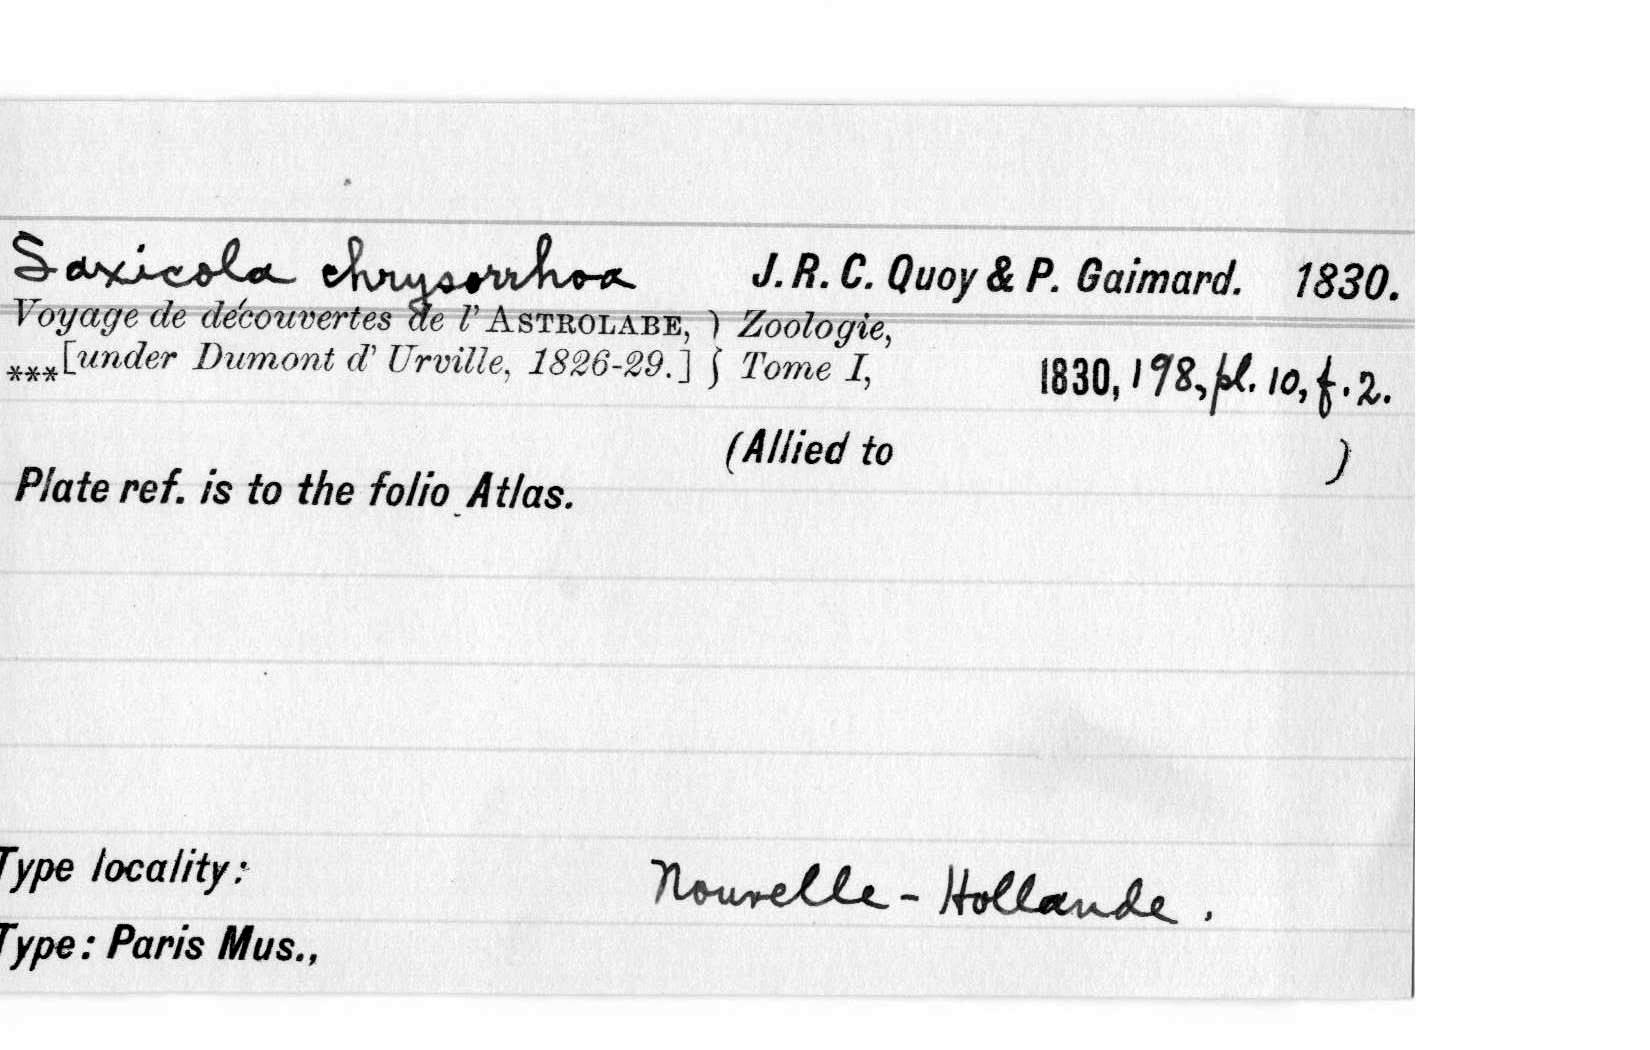 Saxicola chrysorrhoa J. R. C. Quoy & P. Gaimard. 1830.
Voyage de découvertes de l' ASTROLABE, ) Zoologie,
***[under Dumont d' Urville, 1826-29.] } Tome I, 1830, 198, pl. 10, f. 2.
(Allied to )
Plate ref. is to the folio Atlas.
Type locality: Nouvelle-Hollande.
Type: Paris Mus.,